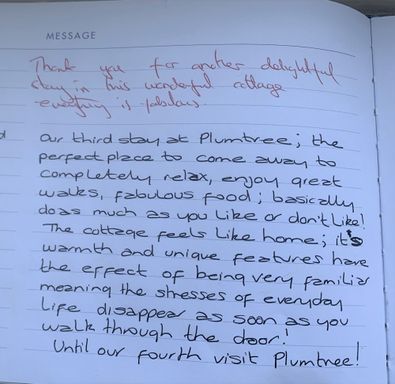 MESSAGE
Thank you for another delightful
stay in this wonderful cottage
everything is fabulous
Our third stay at Plumtree; the
perfect place to come away to
completely relax, enjoy great
walks, fabulous food; basically
do as much as you like or don't like!
The cottage feels like home; it's
warmth and unique features have
the effect of being very familiar
meaning the stresses of everyday
life disappear as soon as you
walk through the door!
Until our fourth visit Plumtree!